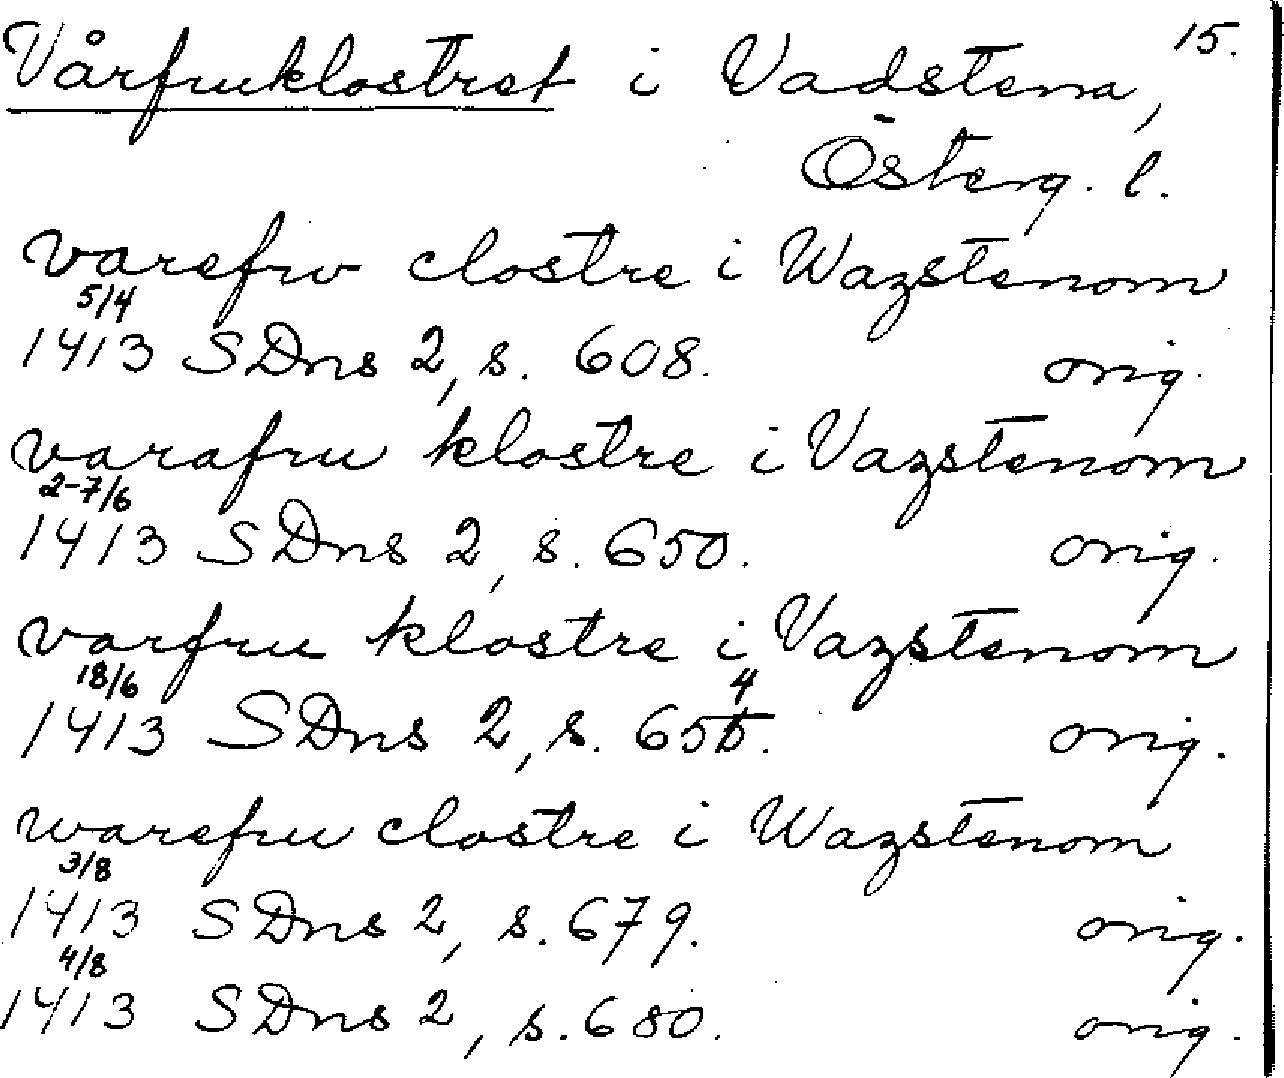 15.
Vårfruklostret i Vadstena,
Österg. l.
varefrv clostre i Wazstenom
5/4
1413 SDns 2, s. 608. orig.
varafru klostre i Vazstenom
2-7/6
1413 SDns 2, s. 650. orig.
varfru klostre i Vazstenom
18/6 4
1413 SDns 2, s. 655. orig.
warefru clostre i Wazstenom
3/8
1413 SDns 2, s. 679. orig.
4/8
1413 SDns 2, s. 680. orig.